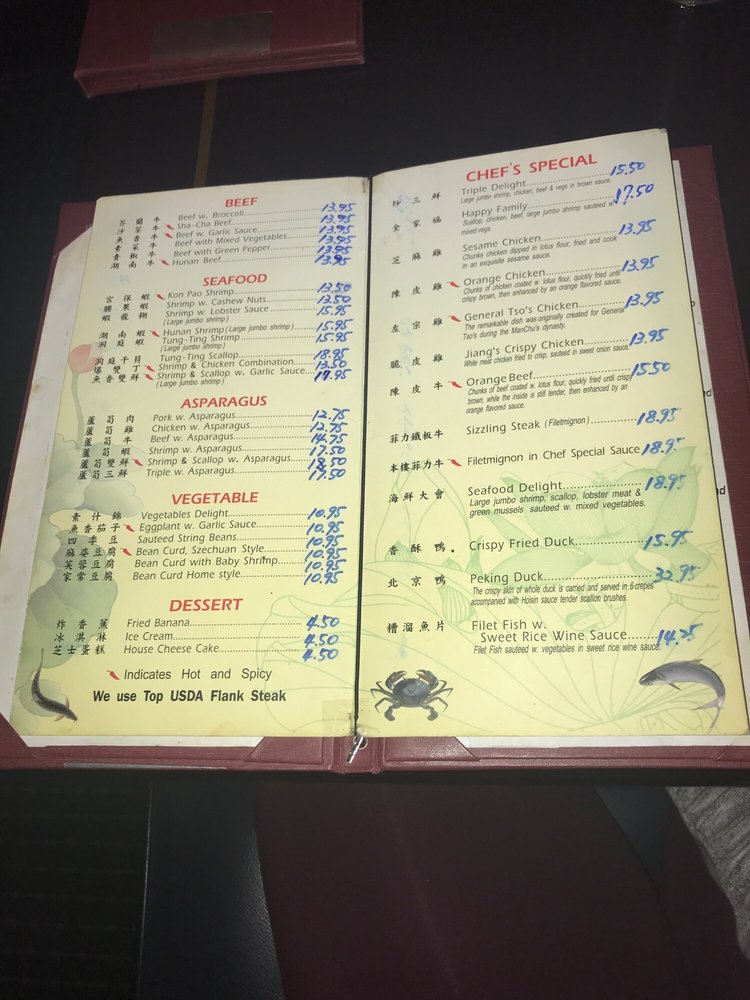 BEEF
芥蘭牛 Beef w. Broccoli 13.95
沙茶牛 Sha-Cha Beef 13.95
魚香牛 Beef w. Garlic Sauce 13.95
素菜牛 Beef with Mixed Vegetables 13.95
青椒牛 Beef with Green Pepper 13.95
湖南牛 Hunan Beef 13.95
SEAFOOD
宮保蝦 Kon Pao Shrimp 13.50
腰果蝦 Shrimp w. Cashew Nuts 13.50
蝦龍糊 Shrimp w. Lobster Sauce 15.95
(Large jumbo shrimp)
湖南蝦 Hunan Shrimp (Large jumbo shrimp) 15.95
洞庭蝦 Tung-Ting Shrimp 15.95
(Large jumbo shrimp)
洞庭干貝 Tung-Ting Scallop 18.95
爆雙丁 Shrimp & Chicken Combination 13.50
魚香雙鮮 Shrimp & Scallop w. Garlic Sauce 17.95
(Large jumbo shrimp)
ASPARAGUS
蘆筍肉 Pork w. Asparagus 12.75
蘆筍雞 Chicken w. Asparagus 12.75
蘆筍牛 Beef w. Asparagus 14.75
蘆筍蝦 Shrimp w. Asparagus 17.50
蘆筍雙鮮 Shrimp & Scallop w. Asparagus 18.50
蘆筍三鮮 Triple w. Asparagus 17.50
VEGETABLE
素什錦 Vegetables Delight 10.95
魚香茄子 Eggplant w. Garlic Sauce 10.95
四季豆 Sauteed String Beans 10.95
麻婆豆腐 Bean Curd, Szechuan Style 10.95
芙蓉豆腐 Bean Curd with Baby Shrimp 10.95
家常豆腐 Bean Curd Home style 10.95
DESSERT
炸香蕉 Fried Banana 4.50
冰淇淋 Ice Cream 4.50
芝士蛋糕 House Cheese Cake 4.50
Indicates Hot and Spicy
We use Top USDA Flank Steak
CHEF'S SPECIAL
炒三鮮 Triple Delight 15.50
Large jumbo shrimp, chicken, beef & vegs in brown sauce.
全家福 Happy Family 17.50
Scallop, chicken, beef, large jumbo shrimp sauteed w.
mixed vegs.
芝麻雞 Sesame Chicken 13.95
Chunks chicken dipped in lotus flour, fried and cook
in an exquisite sesame sauce.
陳皮雞 Orange Chicken 13.95
Chunks of chicken coated w. lotus flour, quickly fried until
crispy brown, then enhanced by an orange flavored sauce.
左宗雞 General Tso's Chicken 13.95
The remarkable dish was originally created for General
Tso's during the ManChu's dynasty.
脆皮雞 Jiang's Crispy Chicken 13.95
While meat chicken fried to crisp, sauteed in sweet onion sauce.
陳皮牛 Orange Beef 15.50
Chunks of beef coated w. lotus flour, quickly fried until crispy
brown, while the inside is still tender, then enhanced by an
orange flavored sauce.
菲力鐵板牛 Sizzling Steak (Filetmignon) 18.95
本樓菲力牛 Filetmignon in Chef Special Sauce 18.95
海鮮大會 Seafood Delight 18.95
Large jumbo shrimp, scallop, lobster meat &
green mussels sauteed w. mixed vegetables.
香酥鴨 Crispy Fried Duck 15.95
北京鴨 Peking Duck 32.95
The crispy skin of whole duck is carried and served in 6 crepes
accompanied with Hoisin sauce tender scallion brushes.
糟溜魚片 Filet Fish w.
Sweet Rice Wine Sauce 14.25
Filet Fish sauteed w. vegetables in sweet rice wine sauce.